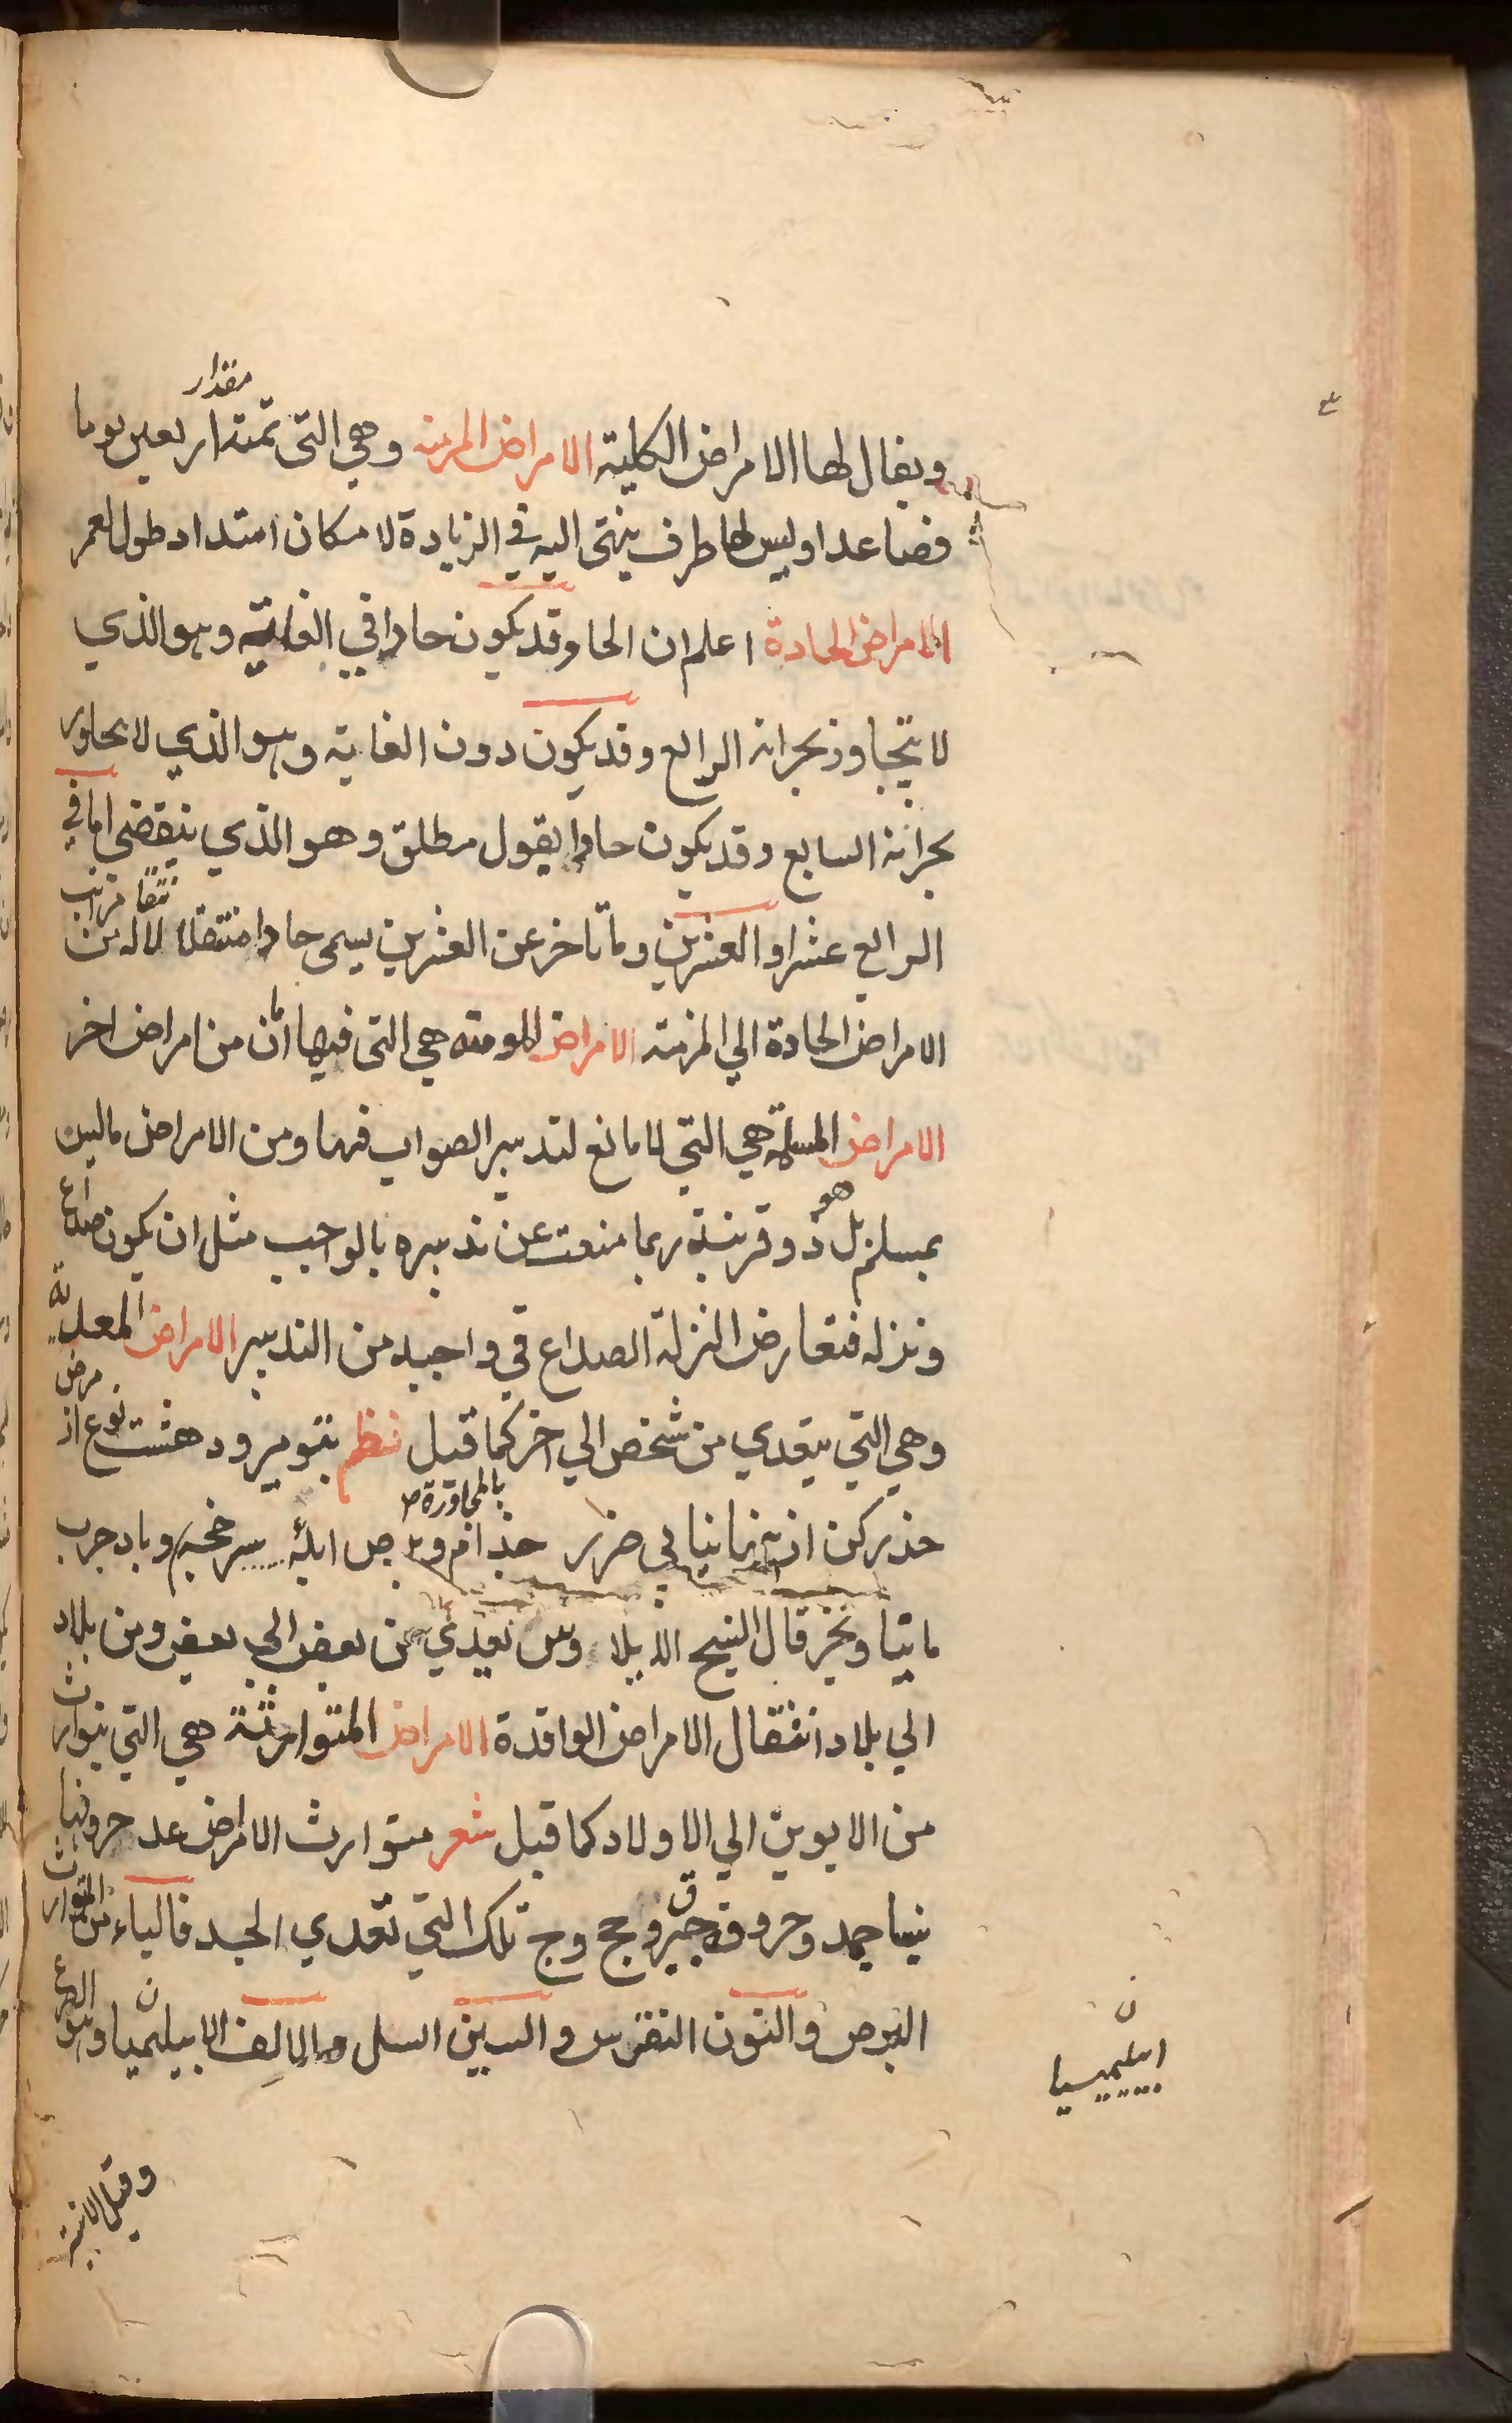 مقدار
ويقال لها الامراض الكلية الامراض المزمنه وهي التى تمتد اربعين يوما
فصاعدا وليس لها طرف ينتهى اليه في الزيادة لامكان امتداد طول العمر
الامراض الحادة اعلم ان الحاد قد يكون حادا في الغاية وهو الذي
لا يتجاوز بحرانه الرابع وقد يكون دون الغاية وهو الذي لا يجاوز
بحرانه السابع وقد يكون حادا بقول مطلق وهو الذي ينقضى اما في
الرابع عشر او العشرين وما تاخر عن العشرين يسمى حادا منتقلا لاله من
الامراض الحادة الي المزمنه الامراض هي التى فيها امان من امراض اخر
الامراض المسلمة هي التي لا مانع لتدبير الصواب فيها ومن الامراض ماليس
بمسلم بل هو ذو قرينة ربما منعت عن تدبيره بالواجب مثل ان يكون صداع
ونزله فتعارض النزلة الصداع في واجبه من التدبير الامراض المعدية
وهي التي يتعدي من شخص الي اخر كما قيل نظم بتو ميرود هشت نوع از مرض
حذر كن ازينها نيابي ضرر جذام و برص ابله سرخجه وبا و جرب
بالمجاورة
قال الشيخ بعض الي بعض ومن بلاد
الي بلاد انتقال الامراض الوافدة الامراض المتوارثة هي التي يتوارث
من الابوين الي الاولاد كما قيل شعر متوارث الامراض عد حروفها
تلك التي تعدي الجسد فالباء من المتوارث
البرص والنون النقرس والسين السل والالف الابيلمسيا وهو الصرع
ن
ابيليميسيا
وقيل